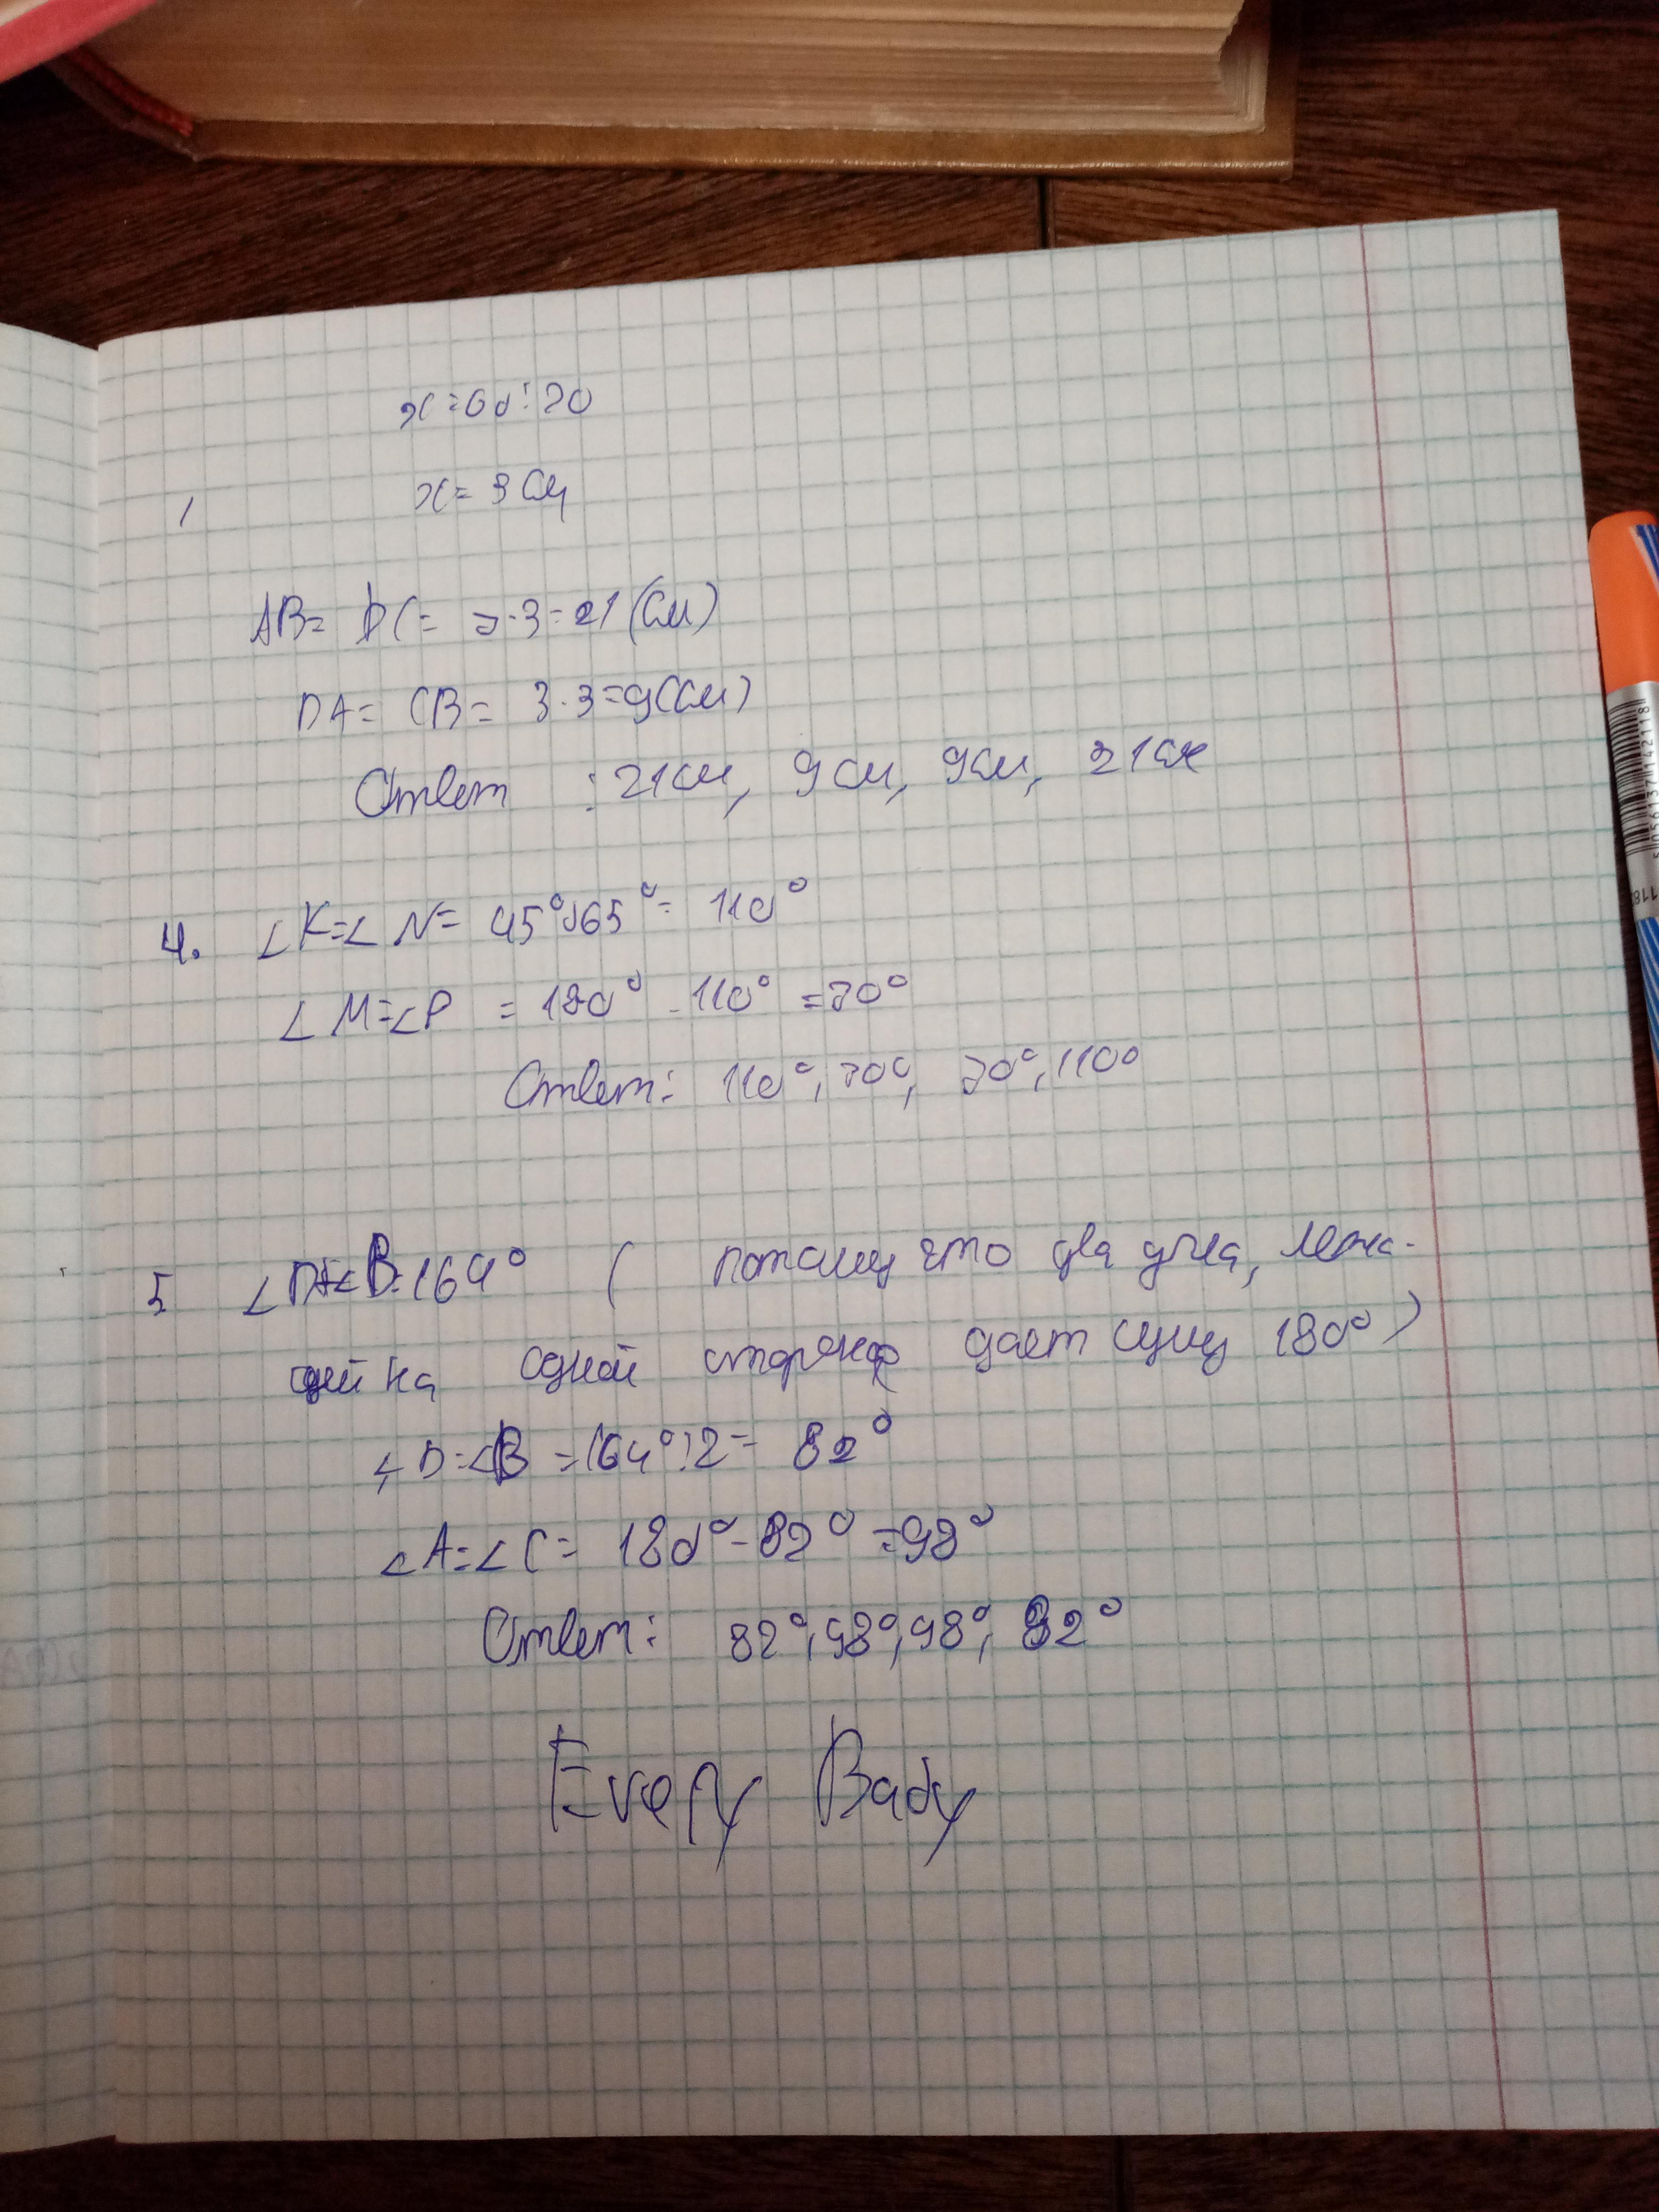 x=60:20
x=3см
AB= DC= 7·3=21(см)
DA= CB= 3·3=9(см)
Ответ : 21см, 9см, 9см, 21см
4. ∠K=∠N= 45°+65°= 110°
∠M=∠P = 180° - 110° =70°
Ответ: 110°, 70°, 70°, 110°
5 ∠D+∠B=164° ( потому что два угла, лежа-
щей на одной стороне дает сумму 180°)
∠D=∠B =164°:2= 82°
∠A=∠C= 180°-82°=98°
Ответ: 82°, 98°, 98°, 82°
Every Bady